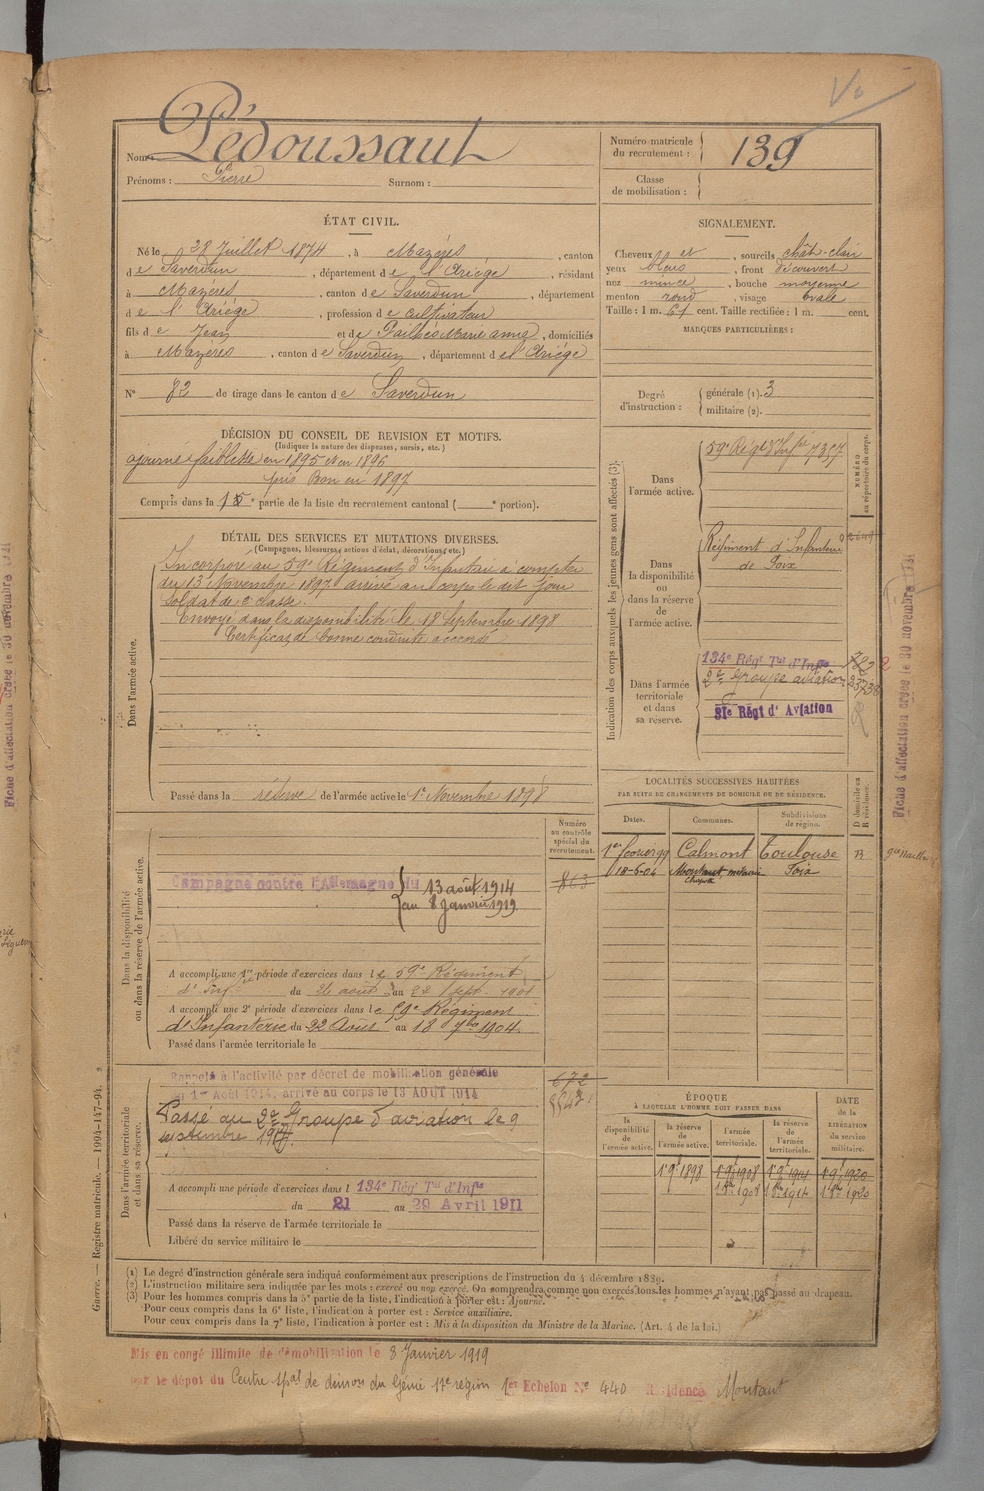 Nom : Pédoussaut
Prénoms : Pierre Surnom :
Numéro matricule
du recrutement : 139
Classe
de mobilisation :
ÉTAT CIVIL.
Né le 28 Juillet 1874, à Mazères, canton
de Saverdun, département de l'Ariège, résidant
à Mazères, canton de Saverdun, département
de l'Ariège, profession de cultivateur
fils de Jean et de Pailhés Marie anne, domiciliés
à Mazères, canton de Saverdun, département de l'Ariège
N° 82 de tirage dans le canton de Saverdun
SIGNALEMENT.
Cheveux et, sourcils chât-clair
yeux bleus, front découvert
nez mince, bouche moyenne
menton rond, visage ovale
Taille : 1 m. 61 cent. Taille rectifiée : 1 m. cent.
MARQUES PARTICULIÈRES :
Degré
d'instruction :
générale (1). 3
militaire (2).
DÉCISION DU CONSEIL DE REVISION ET MOTIFS.
(Indiquer la nature des dispenses, sursis, etc.)
ajourné faiblesse en 1895 et en 1896
pris Bon en 1897
Compris dans la partie de la liste du recrutement cantonal ( portion).
DÉTAIL DES SERVICES ET MUTATIONS DIVERSES.
(Campagnes, blessures, actions d'éclat, décorations, etc.)
Dans l'armée active.
Incorporé au 59e Régiment d'Infanterie à compter
du 13 Novembre 1897 arrivé au corps le dit jour
Soldat de 2e classe.
Envoyé dans la disponibilité le 18 Septembre 1898
Certificat de bonne conduite accordé
Passé dans la réserve de l'armée active le 1er Novembre 1898
Indication des corps auxquels les jeunes gens sont affectés (3).
NUMÉRO
au répertoire du corps.
Dans
l'armée active.
59e Régt d'Infie 7357
Dans
la disponibilité
ou
dans la réserve
de
l'armée active.
Régiment d'Infanterie
de Foix
Dans l'armée
territoriale
et dans
sa réserve.
134e Régt Tal d'Infie
2e groupe aviation
31e Régt d'Aviation
LOCALITÉS SUCCESSIVES HABITÉES
PAR SUITE DE CHANGEMENTS DE DOMICILE OU DE RÉSIDENCE.
Dates. Communes. Subdivisions de région. D domicile ou R résidence.
Calmont Toulouse R
18-5-04 Montaut Foix
Fiche d'affectation créée le 30 novembre
Fiche d'affectation créée le 30 novembre
Dans la disponibilité
ou dans la réserve de l'armée active.
Numéro
au contrôle
spécial du
recrutement.
Campagne contre l'Allemagne du 13 août 1914
au 8 Janvier 1919
863
A accompli une 1re période d'exercices dans le 59e Régiment
d'Infie du 26 août au 22 Sept. 1901
A accompli une 2e période d'exercices dans le 59e Régiment
d'Infanterie du 22 Août au 18 7bre 1904.
Passé dans l'armée territoriale le
Dans l'armée territoriale
et dans sa réserve.
Rappelé à l'activité par décret de mobilisation générale
du 1er Août 1914, arrivé au corps le 13 AOUT 1914
672
Passé au 2e Groupe d'aviation le 9
septembre
A accompli une période d'exercices dans l 134e Régt Tal d'Infie
du 21 au 29 Avril 1911
Passé dans la réserve de l'armée territoriale le
Libéré du service militaire le
ÉPOQUE
À LAQUELLE L'HOMME DOIT PASSER DANS
la disponibilité de l'armée active.
la réserve de l'armée active.
l'armée territoriale.
la réserve de l'armée territoriale.
DATE
de la
LIBÉRATION
du service
militaire.
1er 9bre 1898 1er 9bre 1908 1er 9bre 1914 1er 9bre 1920
(1) Le degré d'instruction générale sera indiqué conformément aux prescriptions de l'instruction du 4 décembre 1889.
(2) L'instruction militaire sera indiquée par les mots : exercé ou non exercé. On comprendra comme non exercés tous les hommes n'ayant pas passé au drapeau.
(3) Pour les hommes compris dans la 5e partie de la liste, l'indication à porter est : Ajourné.
Pour ceux compris dans la 6e liste, l'indication à porter est : Service auxiliaire.
Pour ceux compris dans la 7e liste, l'indication à porter est : Mis à la disposition du Ministre de la Marine. (Art. 4 de la loi.)
Guerre. — Registre matricule. — 1994-147-94.
Mis en congé illimité de démobilisation le 8 Janvier 1919
par le dépôt du Centre spal de démon du Génie 17e région 1er Echelon N° 440 Résidence Montaut